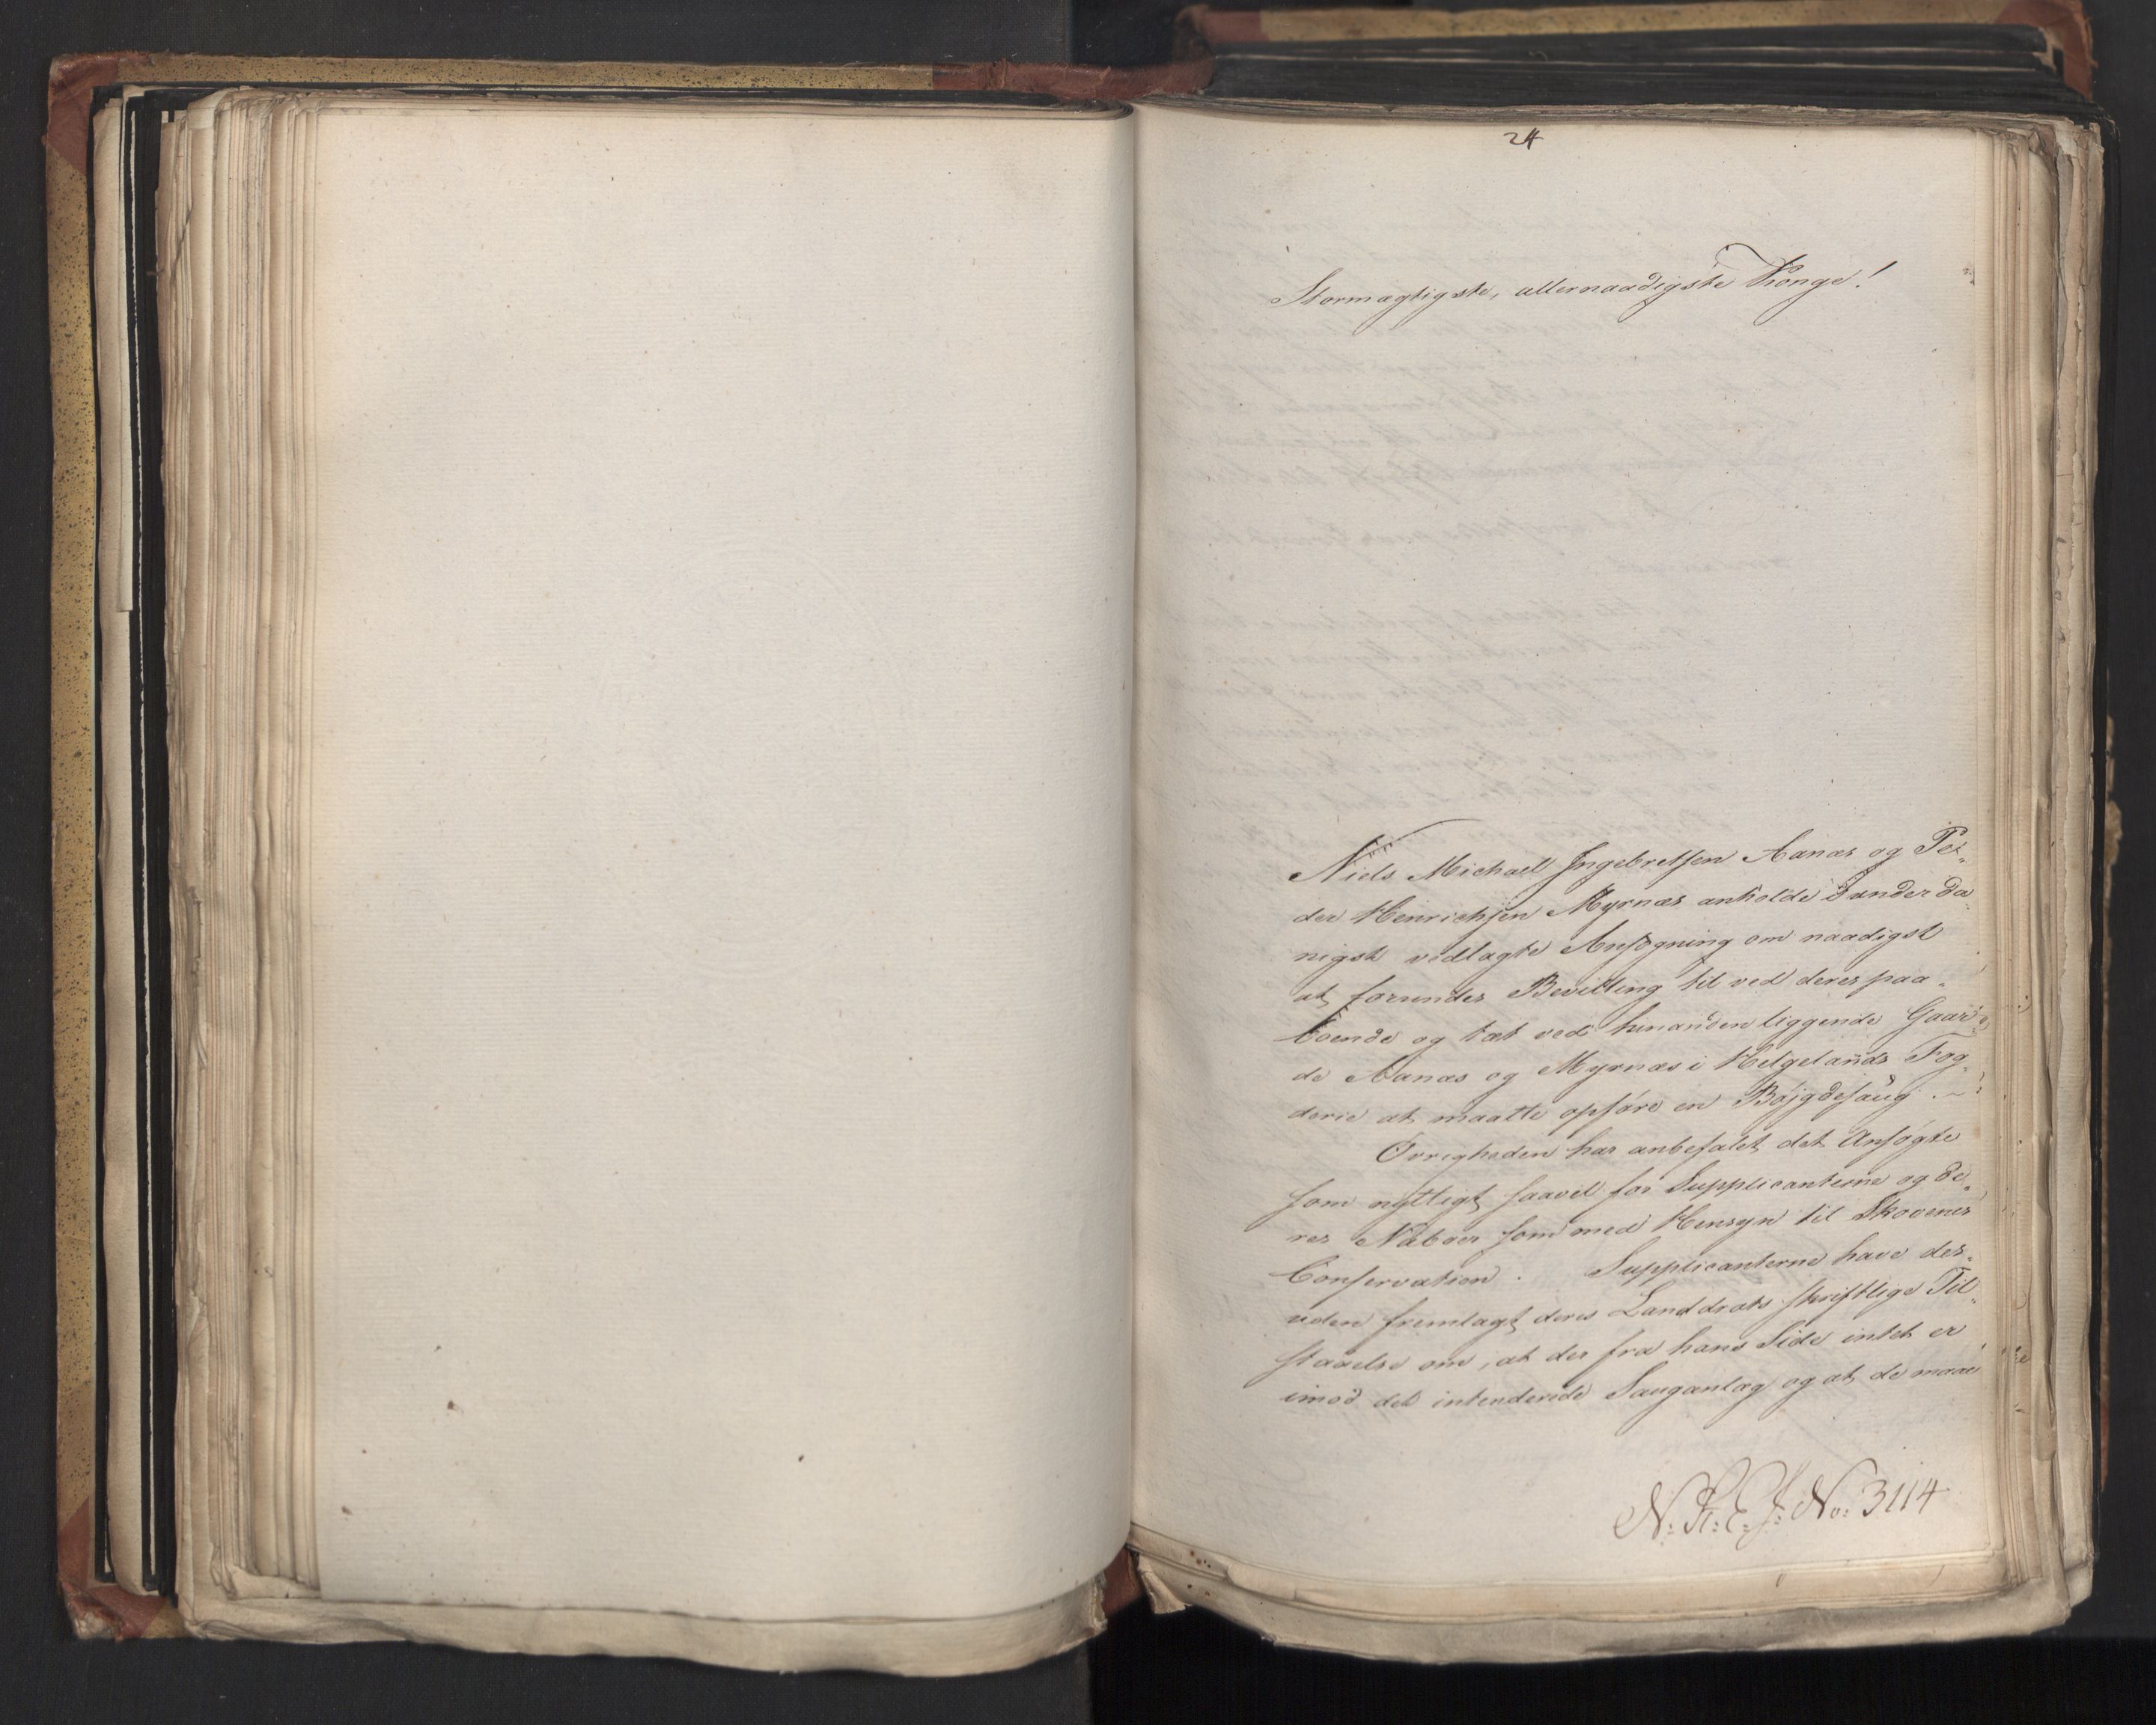 24
Stormægtigste, allernaadigste Konge!
Niels Michael Ingebretsen Aanæs og Pe-
der Henrichsen Myrnæs anholde i underda-
nigst vedlagte Ansøgning om naadigst
at forundes Bevilling til ved deres paa-
boende og tæt ved hinanden liggende Gaar-
de Aanæs og Myrnæs i Helgelands Fog-
derie at maatte opføre en Bøjgdesaug.
Øvrigheden har anbefalet det Ansøgte
som nyttigt saavel for Supplicanterne og de-
res Naboer som med Hensyn til Skovenes
Conservation. Supplicanterne have des-
uden fremlagt deres Landdrots skriftlige Til-
staaelse om, at der fra hans Side intet er
imod det intenderede Sauganlæg og at de maae
N: R: E: J: No: 3114